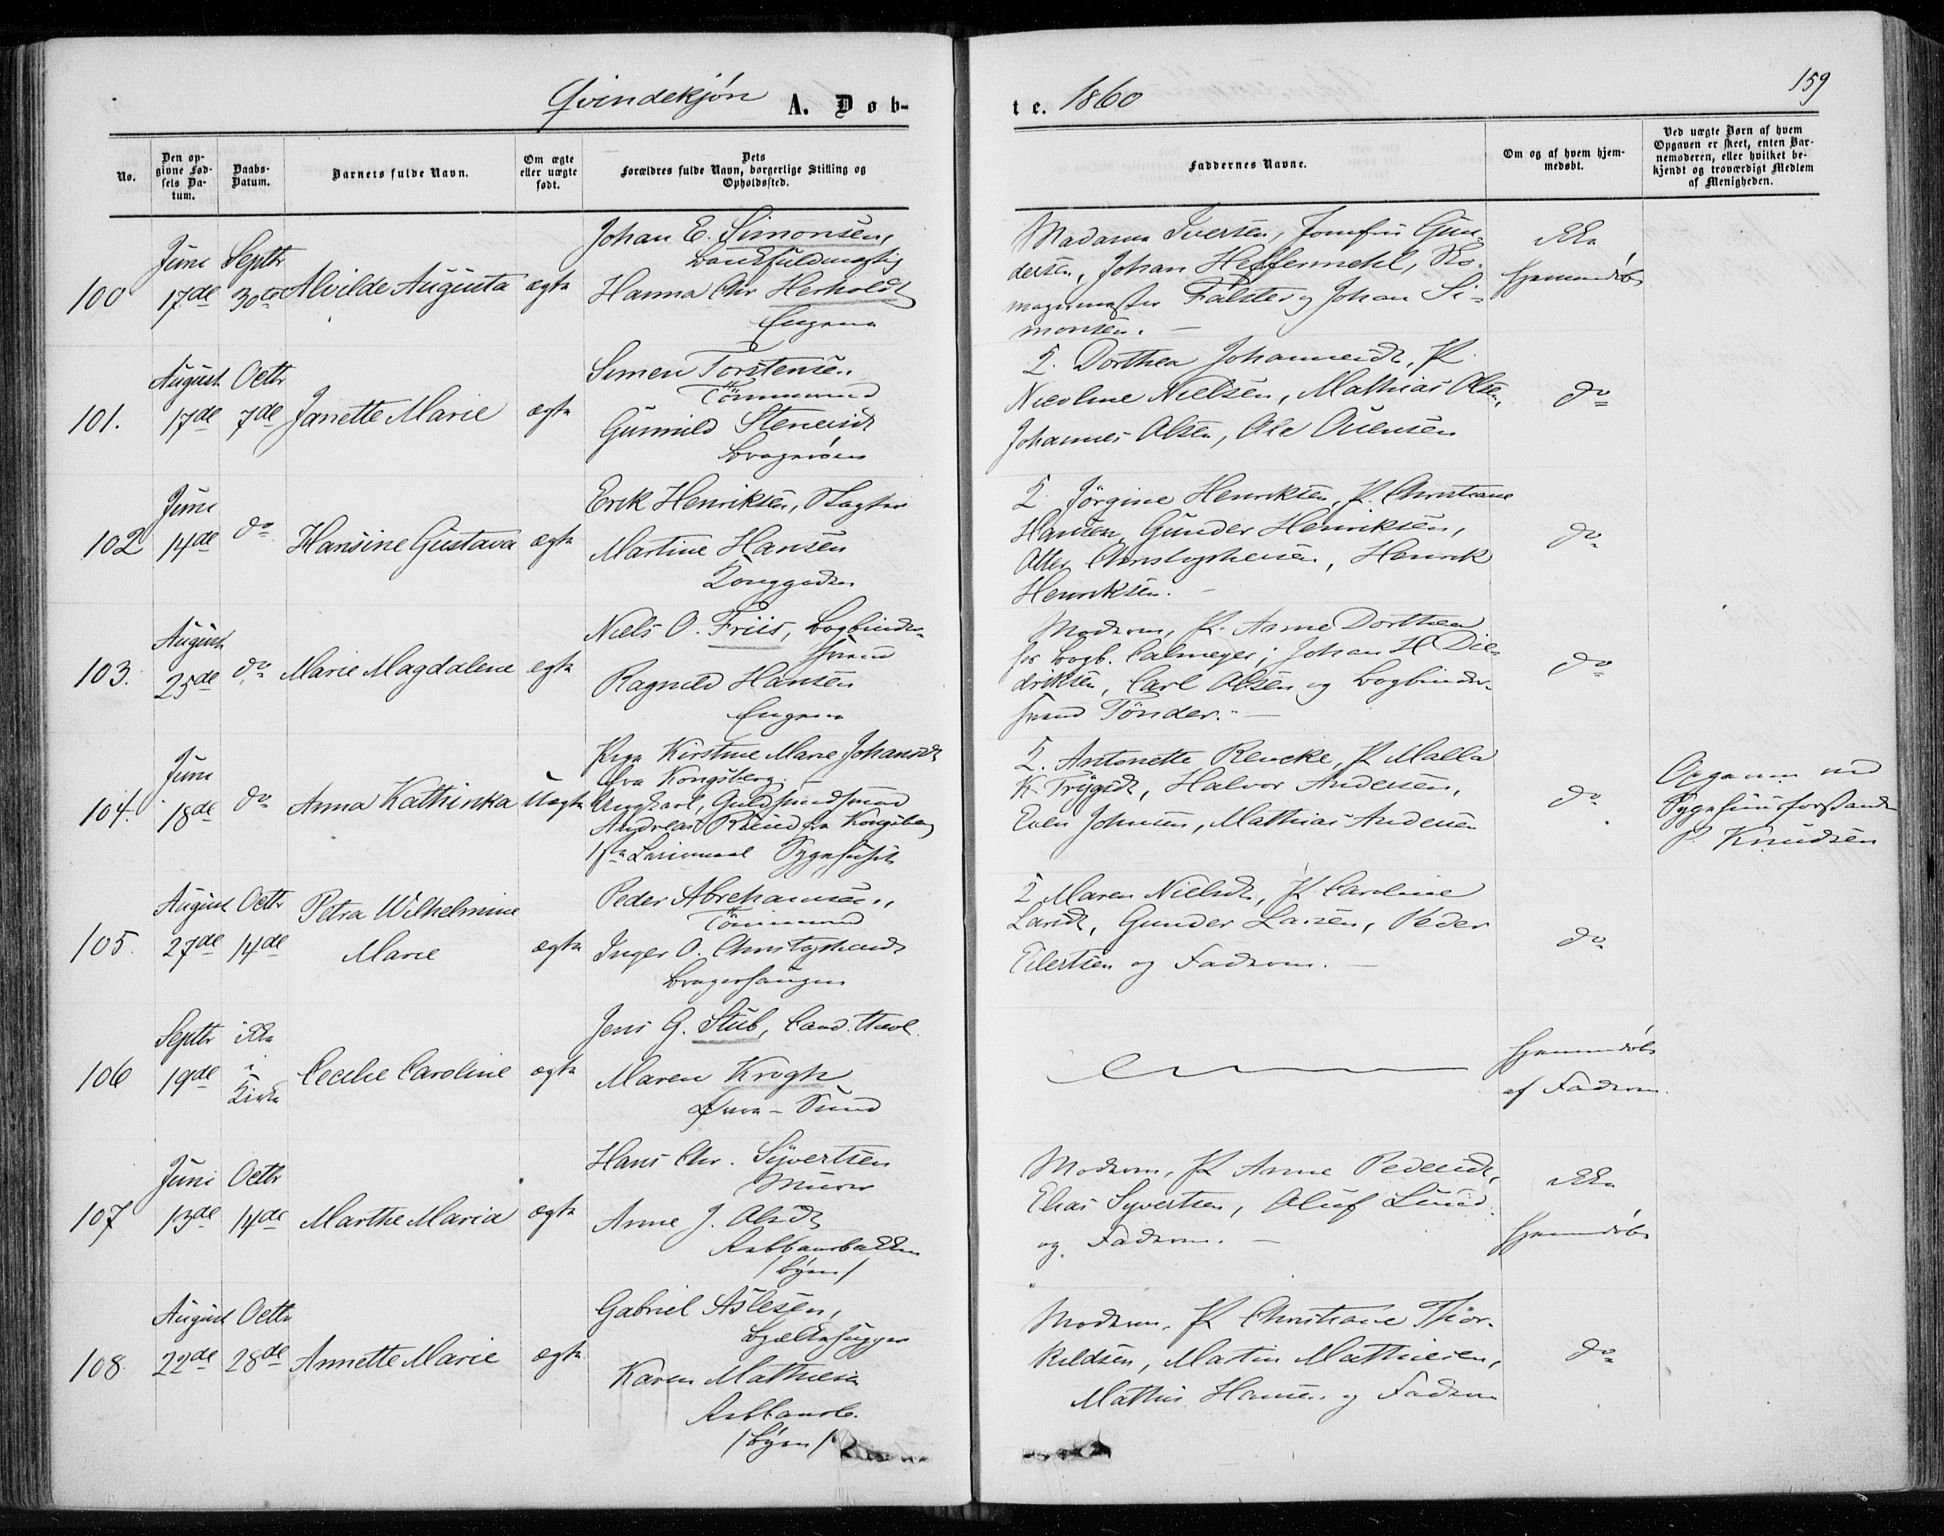 Qvindekjøn A. Døb-
te. 1860
159
No.
Den op-
givne Fød-
sels Da-
tum.
Daabs-
Datum.
Barnets fulde Navn.
Om ægte
eller uægte
født.
Dets
Forældres fulde Navn, borgerlige Stilling og
Opholdssted.
Faddernes Navne.
Om og af hvem hjem-
medøbt.
Ved uægte Børn af hvem
Opgaven er skeet, enten Bar-
nemoderen, eller hvilket be-
kjendt og troværdigt Medlem
af Menigheden.
100
Juni
17de
Septbr
30te
Alvilde Augusta
ægte
Johan E. Simonsen,
Hanna Chr Herholdt
Engene
Madame Iversen, Jomfru Gun-
dersen, Johan Heffermehl, Sko-
magermester Falster og Johan Si-
monsen. —
ikke
hjemmedøbt
101.
August
17de
Octbr
7de
Janette Marie
ægte
Simen Torstensen,
Tømmermd
Gunnild Stenersdt
Bragerøen
Q. Dorthea Johannesdt, P.
Nicoline Nielsen, Mathias Olsen,
Johannes Olsen, Ole Evensen
do
102
Juni
14de
do
Hansine Gustava
ægte
Erik Henriksen, Slagter
Martine Hansen
Konggaden
Q. Jørgine Henriksen, P. Christiane
Hansen, Gunder Henriksen,
Christophersen, Henrik
Henriksen. —
do
103.
August
25de
do
Marie Magdalene
ægte
Niels O. Friis, Bogbinder-
svend
Ragnild Hansen
Engene
Moderen, P. Anne Dorthea
for Bogb. Calmeyer, Johan H Die-
driksen, Carl Olsen og Bogbinder-
svend Tønder. —
do
104.
Juni
18de
do
Anna Kathinka
Uægte
Pige Kirstine Marie Johansdt
fra Kongsberg. —
Ungkarl, Guldsmedsvend
Andreas fra Kongsberg
1ste Leiermaal Sygehuset
Q. Antonette Rencke, P Malla
K. Trygsdt, Halvor Andersen,
Even Johnsen, Mathias Andersen
do
Opgaven ved
Sygehuusforstander
P. Knudsen
105.
August
27de
Octbr
14de
Petra Wilhelmine
Marie
ægte
Peder Abrahamsen,
Tømmermd
Inger O. Christophersdt
Bragerhaugen
Q Maren Nielsdt, P Caroline
Larsdt, Gunder Larsen, Peder
Eilertsen og Faderen. —
do
106
Septbr
19de
ikke
i
Kirke
Cecilie Caroline
ægte
Jens G. Stub, Cand. theol.
Maren Krogh
hjemmedøbt
af Faderen.
107
Juni
13de
Octbr
14de
Marthe Maria
ægte
Hans Chr. Syvertsen
Murer
Anne J. Olsdt
/Byen/
Moderen, P Anne Pedersdt,
Elias Syvertsen, Oluf Lund
og Faderen. —
ikke
hjemmedøbt
108
August
22de
Octbr
28de
Annette Marie
ægte
Gabriel Aslesen,
Bjælkehugger
Karen Mathisen
/Byen/
Moderen, P Christiane Thor-
kildsen, Martin Mathiesen,
Mathis Hansen og Faderen
do